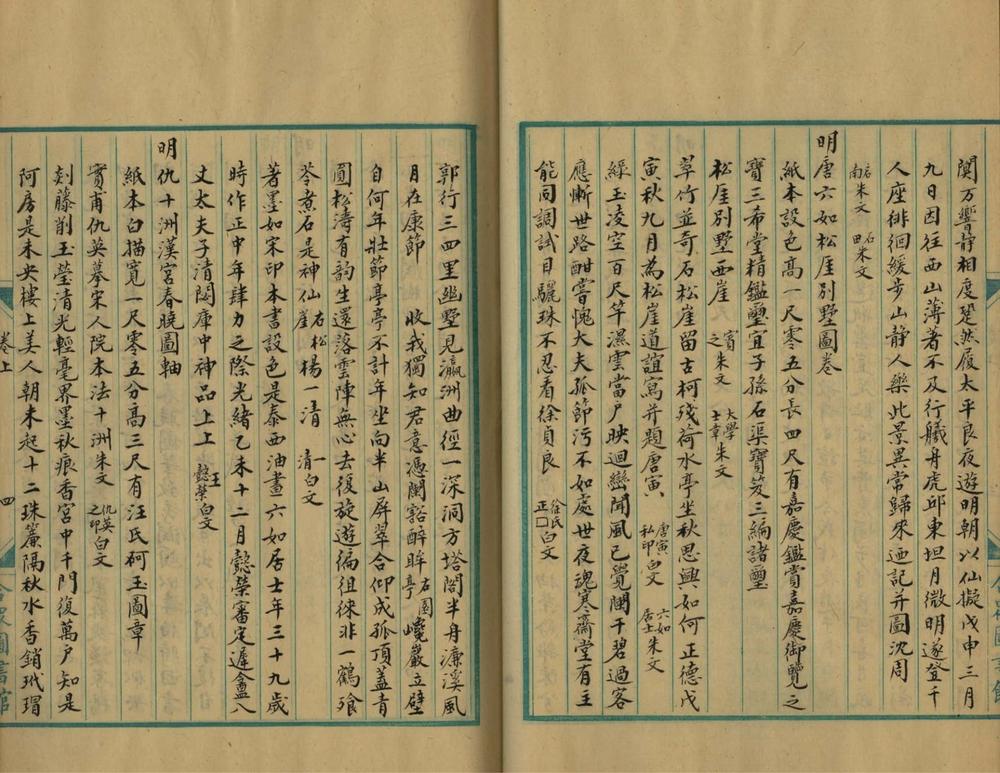 閴万響靜相度跫然履太平良夜遊明朝以仙擬戊申三月
九日因往西山薄著不及行艤舟虎邱東坦月微明遂登千
人座徘徊緩步山靜人樂此景異常歸來迺記并圖沈周
啟南朱文 石田朱文
明唐六如松厓別墅圖卷
紙本設色高一尺零五分長四尺有嘉慶鑑賞嘉慶御覽之
寶三希堂精鑑璽宜子孫石渠寶笈三編諸璽
松厓別墅西崖 賓之朱文 大學士章朱文
翠竹並奇石松崖留古柯殘荷水亭坐秋思興如何正德戊
寅秋九月為松崖道誼寫并題唐寅 唐寅私印白文 六如居士朱文
綠玉凌空百尺竿濕雲當户映迴巒聞風已覺闌干碧過客
應慚世路酣嘗愧大夫孤節污不如處世夜魂寒齋堂有主
能同調試目驪珠不忍看徐貞良 徐氏正□白文
郭行三四里幽墅見瀛洲曲徑一深洞方塔閣半舟濂溪風
月在康節 收我獨知君意憑闌豁醉眸 右園亭 巉巖立壁
自何年壯節亭亭不計年坐向半山屏翠合仰成孤頂蓋青
圓松濤有韵生還落雲陣無心去復旋遊徧徂徠非一鶴飱
苓煮石是神仙 右松崖 楊一清 一清白文
著墨如宋印本書設色是泰西油畫六如居士年三十九歲
時作正中年肆力之際光緒乙未十二月懿榮審定遲盦八
丈太夫子清閟庫中神品上上 王懿榮白文
明仇十洲漢宮春曉圖軸
紙本白描寬一尺零五分高三尺有汪氏砢玉圖章
實甫仇英摹宋人院本法十洲朱文 仇英之印白文
剡藤削玉瑩清光輕毫界墨秋痕香宮中千門復萬户知是
阿房是未央樓上美人朝未起十二珠簾隔秋水香銷玳瑁
卷上
四